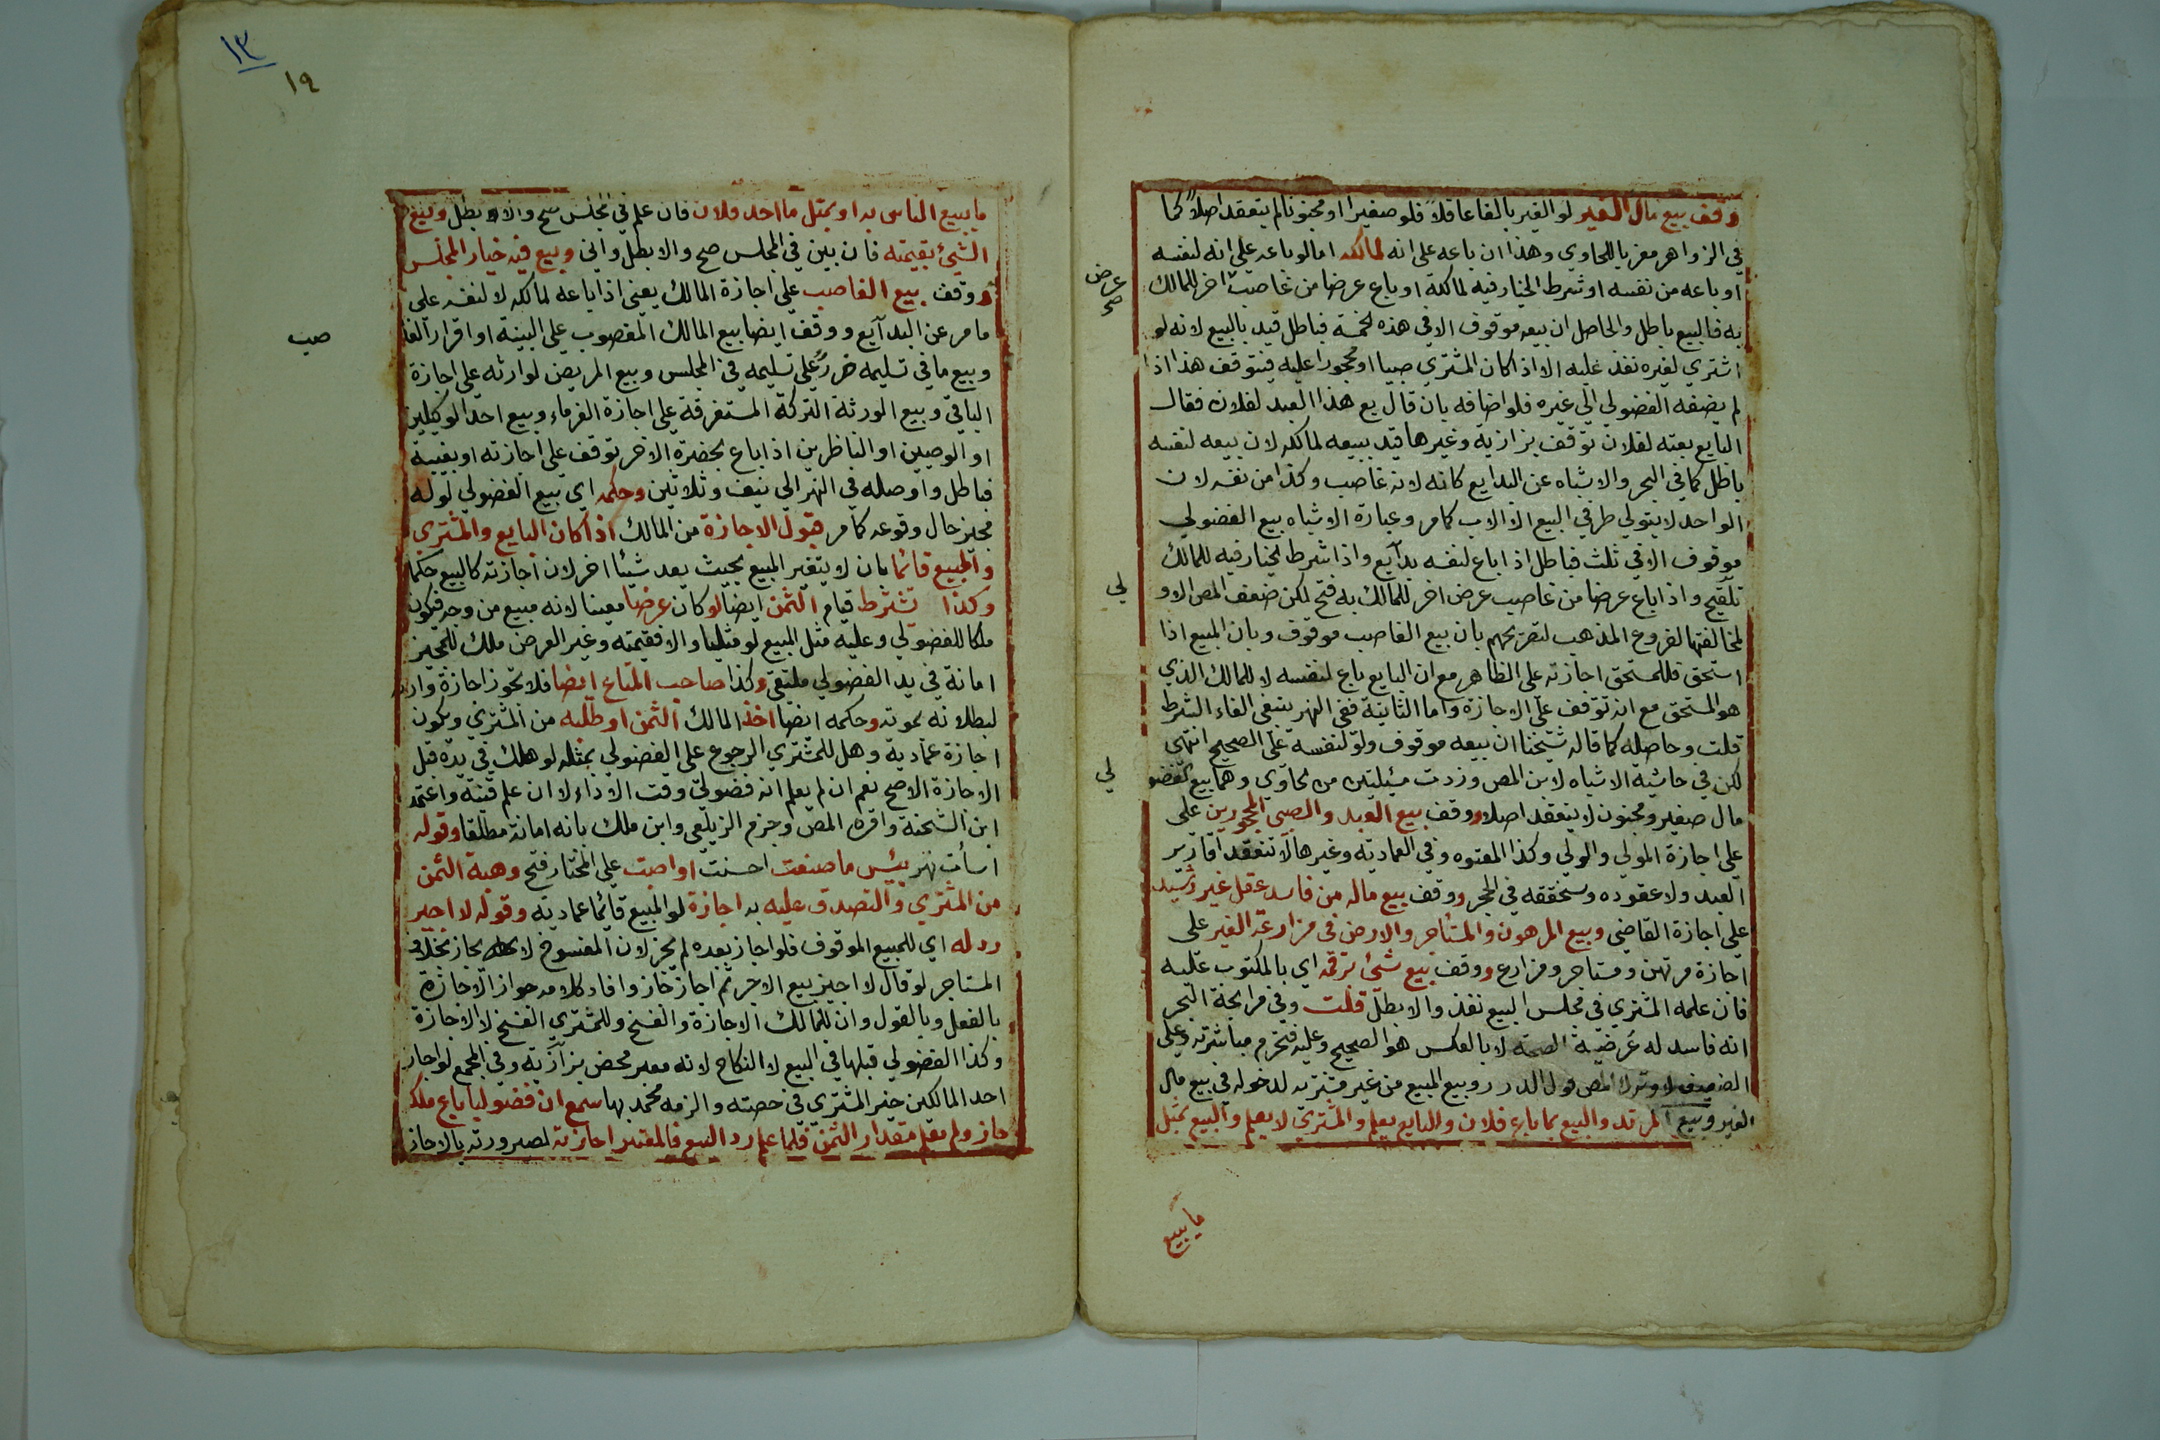 وقف بيع مال الغير لو الغير بالغا عاقلا فلو صغيرا او مجنونا لم ينعقد اصلا كما
في الزواهر معزيا للحاوي وهذا ان باعه على انه لمالكه اما لو باعه على انه لنفسه
او باعه من نفسه او شرط الخيار فيه لمالكه او باع عرضا من غاصب اخر للمالك
عرض صح
به فالبيع باطل والحاصل ان بيعه موقوف الا في هذه الخمسة فباطل قيد بالبيع لانه لو
اشترى لغيره نفذ عليه الا اذا كان المشتري صبيا او محجورا عليه فيتوقف هذا اذا
لم يضفه الفضولي الى غيره فلو اضافه بان قال بع هذا العبد لفلان فقال
البايع بعته لفلان توقف بزازية وغيرها قيد ببيعه لمالكه لان بيعه لنفسه
باطل كما في البحر والاشباه عن البدايع كانه لانه غاصب وكذا من نفسه لان
الواحد لا يتولى طرفي البيع الا الاب كما مر وعبارة الاشباه بيع الفضولي
موقوف الا في ثلث فباطل اذا باع لنفسه بدايع واذا شرط الخيار فيه للمالك
تلقيح واذا باع عرضا من غاصب عرض اخر للمالك به فتح لكن ضعف المص الاو
لي
لمخالفتها لفروع المذهب لتصريحهم بان بيع الغاصب موقوف وبان المبيع اذا
استحق فللمستحق اجازته على الظاهر مع ان البايع باع لنفسه لا للمالك الذي
هو المستحق مع انه توقف على الاجازة واما الثانية ففي النهر ينبغي الغاء الشرط
قلت وحاصله كما قاله شيخنا ان بيعه موقوف ولو لنفسه على الصحيح انتهى
لكن في حاشية الاشباه لابن المص وزدت مسئلتين من الحاوي وهما بيع الفضو
لي
مال صغير ومجنون لا ينعقد اصلا ووقف بيع العبد والصبي المحجورين على
على اجازة المولى والولي وكذا المعتوه وفي العمادية وغيرها لا تنعقد اقارير
العبد ولا عقوده وسنحققه في الحجر ووقف بيع ماله من فاسد عقل غير رشيد
على اجازة القاضي وبيع المرهون والمستاجر والارض في مزارعة الغير على
اجازة مرتهن ومستاجر ومزارع ووقف بيع شئ برقمه اي بالمكتوب عليه
فان علمه المشتري في مجلس البيع نفذ والا بطل قلت وفي مرابحة البحر
انه فاسد له عرضية الصحة لا بالعكس هو الصحيح وعليه فتحرم مباشرته وعلى
الضعيف لا وترك المص قول الدرر وبيع المبيع من غير مشتريه لدخوله في بيع مال
الغير وبيع المرتد والبيع بما باع فلان والبايع يعلم والمشتري لا يعلم والبيع بمثل
ما يبيع
١٣
١٩
ما يبيع الناس به او بمثل ما اخذ فلان فان علم في المجلس صح والا بطل وبيع
الشئ بقيمته فان بين في المجلس صح والا بطل واني وبيع فيه خيار المجلس
ووقف بيع الغاصب على اجازة المالك يعني اذا باعه لمالكه لا لنفسه على
مامر عن البدايع ووقف ايضا بيع المالك المغصوب على البينة او اقرار الغا
صب
وبيع ما في تسليمه ضرر على تسليمه في المجلس وبيع المريض لوارثه على اجازة
الباقي وبيع الورثة التركة المستغرقة على اجازة الغرماء وبيع احد الوكيلين
او الوصيين او الناظرين اذا باع بحضرة الاخر توقف على اجازته او بغيبته
فباطل واوصله في النهر الى نيف وثلاثين وحكمه اي بيع الفضولي لو له
مجيز حال وقوعه كما مر قبول الاجازة من المالك اذا كان البايع والمشتري
والمبيع قائما بان لا يتغير المبيع بحيث يعد شيئا اخر لان اجازته كالبيع حكما
وكذا تشترط قيام الثمن ايضا لو كان عرضا معينا لانه مبيع من وجه فيكون
ملكا للفضولي وعليه مثل المبيع لو مثليا والا فقيمته وغير العرض ملك للمجيز
امانة في يد الفضولي ملتقى وكذا صاحب المتاع ايضا فلا تجوز اجازة وارثه
لبطلانه بموته وحكمه ايضا اخذ المالك الثمن او طلبه من المشتري ويكون
اجازة عمادية وهل للمشتري الرجوع على الفضولي بمثله لو هلك في يده قبل
الاجازة الاصح نعم ان لم يعلم انه فضولي وقت الاداء لا ان علم قنية واعتمده
ابن الشحنة واقره المص وجزم الزيلعي وابن ملك بانه امانة مطلقا وقوله
اسأت نهر بئس ما صنعت احسنت او اصبت على المختار فتح وهبة الثمن
من المشتري والتصدق عليه به اجازة لو المبيع قائما عمادية وقوله لا اجيز
رد له اي للمبيع الموقوف فلو اجاز بعده لم يجز لان المفسوخ لا يجاز بخلاف
المستاجر لو قال لا اجيز بيع الاجر ثم اجاز جاز وافاد كلامه جواز الاجازة
بالفعل وبالقول وان للمالك الاجازة والفسخ وللمشتري الفسخ لا الاجازة
وكذا الفضولي قبلها في البيع لا النكاح لانه معبر محض بزازية وفي المجمع لو اجاز
احد المالكين خير المشتري في حصته والزمه محمد بها سمع ان فضوليا باع ملكه
جاز ولم يعلم مقدار الثمن فلما علم رد البيع فالمعتبر اجازته لصيرورته بالاجاز